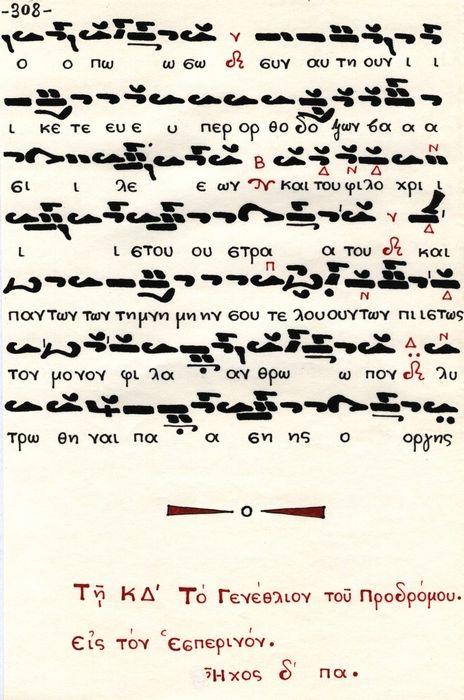 -308-
ο ο πω ω σω ν συγ αυ τη ουγ ι ι
ι κε τε ευ ε υ περ ορ θο δο ξων βα α α
σι ι λε ε ων Β και του φι λο χρι ι
ι ι στου ου στρα α του ν και
παντων των τη μνη μη ην σου τε λου ουν των πι ι στως
τον μο νον φι λα αν θρω ω πον λυ
τρω θη ναι πα α ση ης ο οργης
ο
Τῇ ΚΔ' Τό Γενέθλιον τοῦ Προδρόμου.
Εἰς τόν Ἑσπερινόν.
Ἦχος δ' πα.